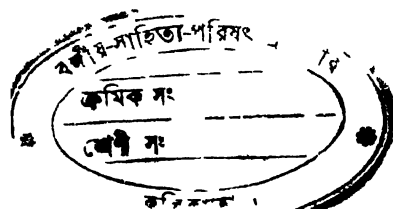 বঙ্গীয়-সাহিত্য-পরিষৎ
ক্রমিক সং
শ্রেণী সং